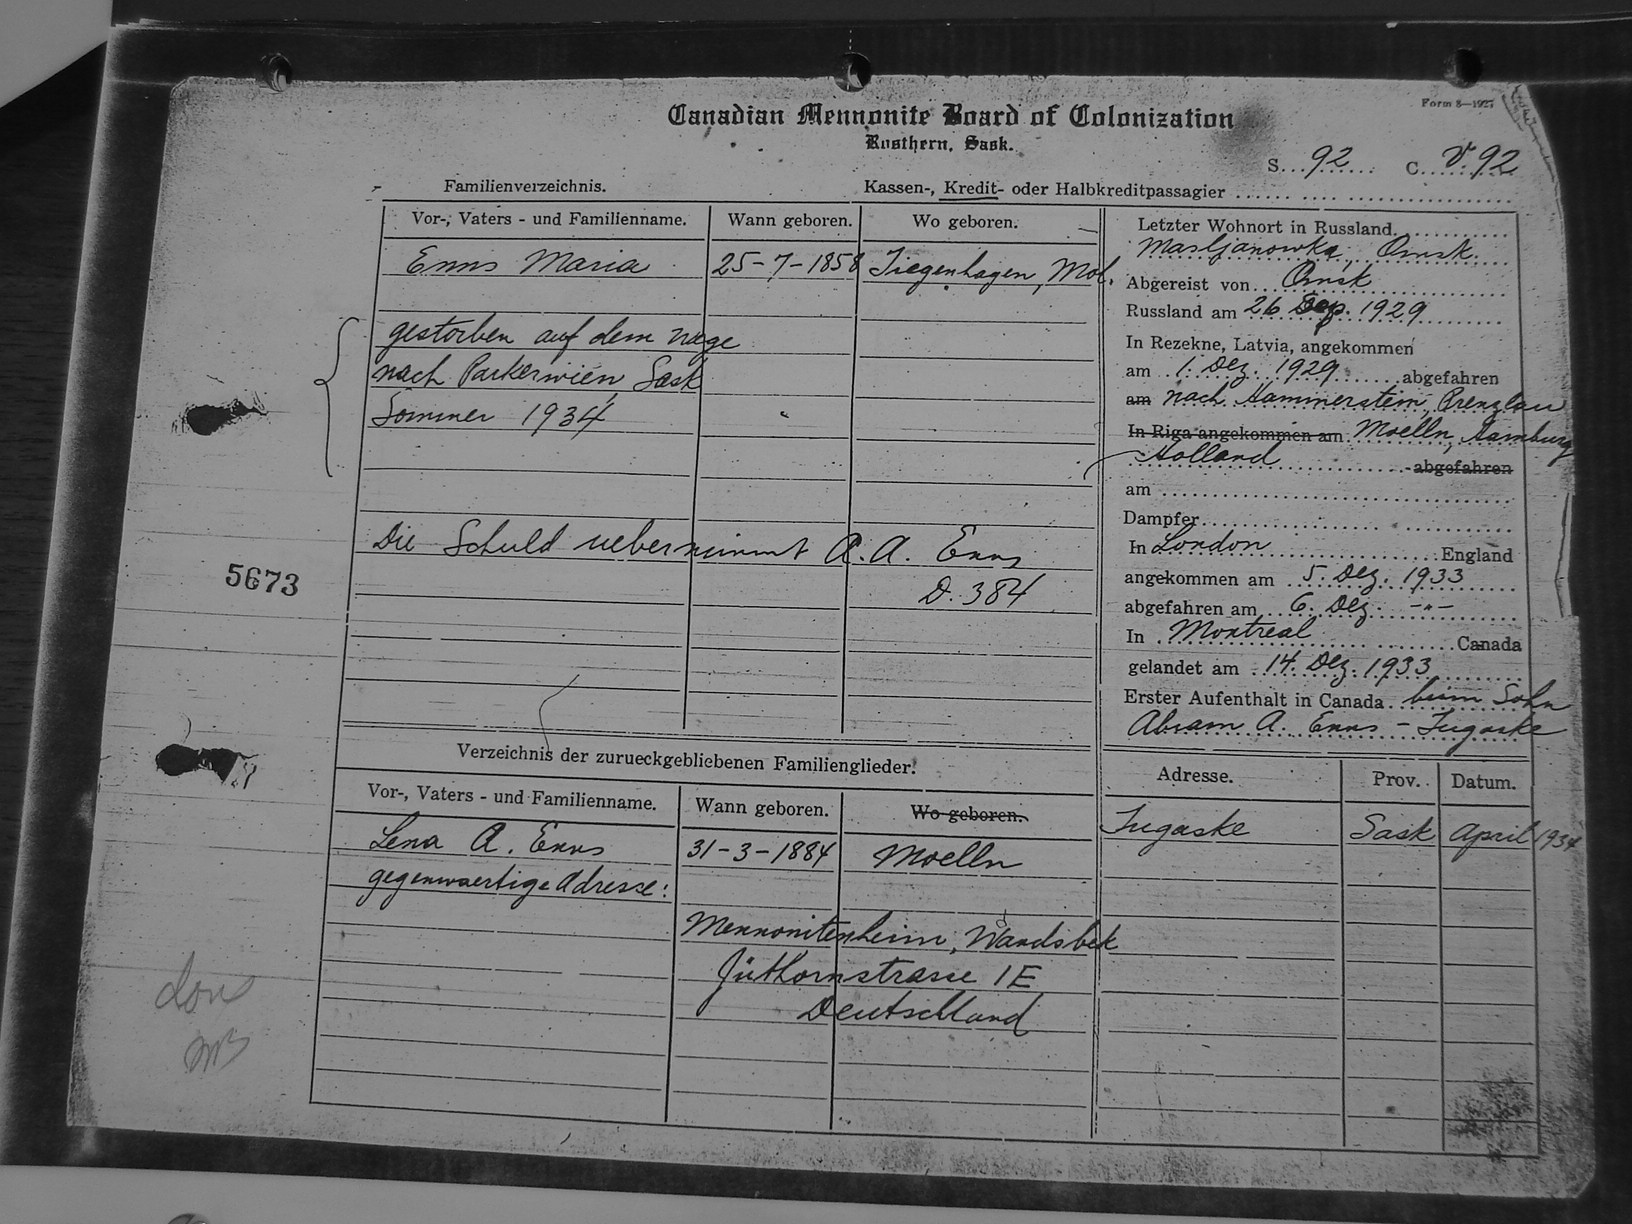 Form 8—1927
Canadian Mennonite Board of Colonization
Rosthern, Sask.
S. 92 C. V. 92
Familienverzeichnis.
Kassen-, Kredit- oder Halbkreditpassagier
Vor-, Vaters - und Familienname. Wann geboren. Wo geboren.
Enns Maria 25-7-1858 Tiegenhagen, Mol.
gestorben auf dem Wege
nach Parkerwien, Sask
Sommer 1934
Die Schuld uebernimmt A. A. Enns
D. 384
5673
Letzter Wohnort in Russland
Masljanowka, Omsk.
Abgereist von Omsk
Russland am 26 Sep. 1929
In Rezekne, Latvia, angekommen
am 1. Dez. 1929 abgefahren
am nach Hammerstein, Prenzlau
In Riga angekommen am Moelln, Hamburg
Holland abgefahren
am
Dampfer
In London England
angekommen am 5. Dez. 1933
abgefahren am 6. Dez. -"-
In Montreal Canada
gelandet am 14. Dez. 1933
Erster Aufenthalt in Canada beim Sohn
Abram A. Enns - Tugaske
Verzeichnis der zurueckgebliebenen Familienglieder.
Vor-, Vaters - und Familienname. Wann geboren. Wo geboren.
Lena A. Enns 31-3-1884 Moelln
gegenwaertige Adresse:
Mennonitenheim, Wandsbek
Jüthornstrasse 1E
Deutschland
Adresse. Prov. Datum.
Tugaske Sask April 1934
MB